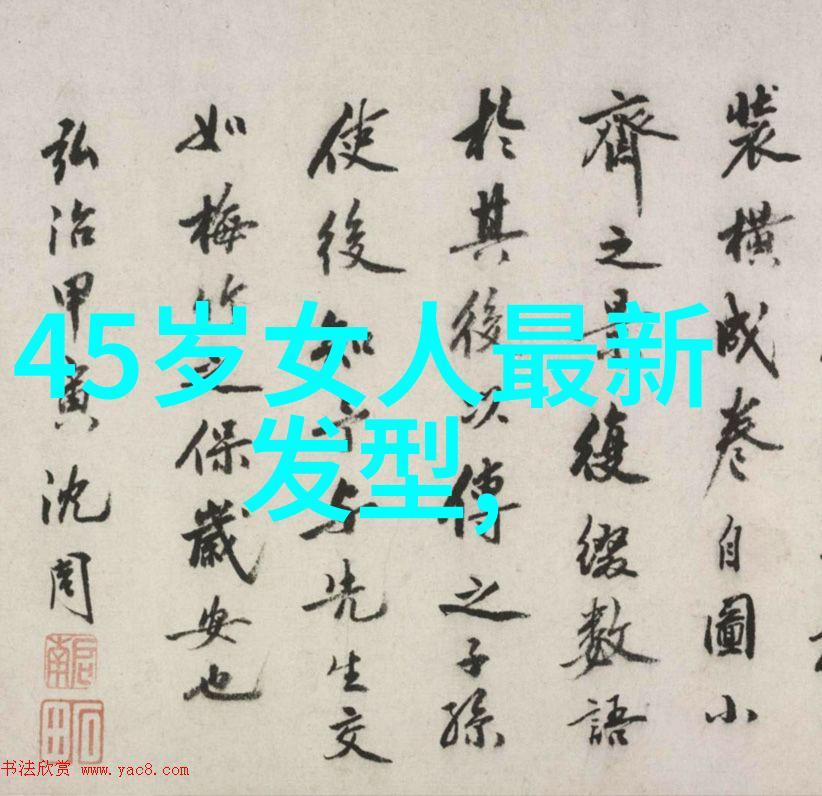 45岁女人最新
发型,
裝橫成卷自圖小
齊之景復綴數語
於其後以傳之子孫
使後知予与先生交
如梅竹之保歲安也
弘治甲寅沈周
书法欣赏 www.yac8.com